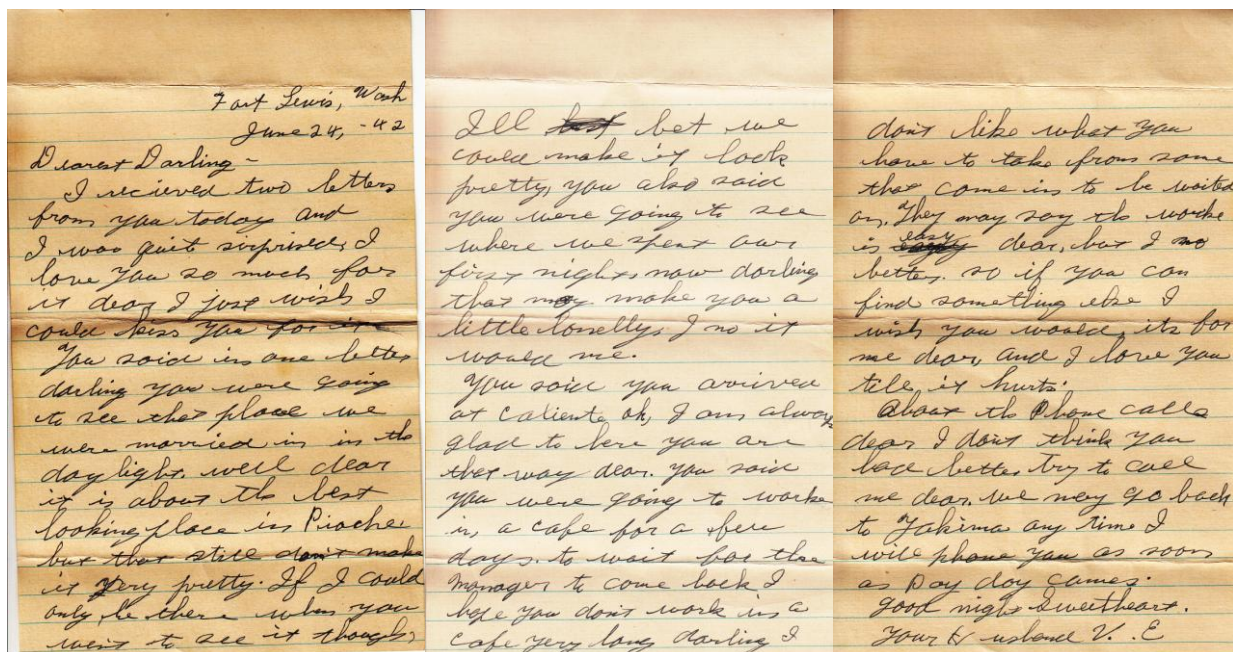 Fort Lewis, Wash
June 24, -42
Dearest Darling -
I recieved two letters
from you today and
I was quit surprised, I
love you so much for
it dear, I just wish I
could kiss you for it
You said in one letter
darling you were going
to see that place we
were married in in the
day light. well dear
it is about the best
looking place in Pioche
but that still don't make
it very pretty. If I could
only be there when you
went to see it though,
I'll bet we
could make it look
pretty, you also said
you were going to see
where we spent our
first night, now darling
that may make you a
little lonelly, I no it
would me.
You said you arrived
at Caliente ok, I am always
glad to here you are
that way dear. You said
you were going to worke
in a cafe for a few
days. to wait for the
manager to come back I
hope you don't work in a
cafe very long darling I
don't like what you
have to take from some
that come in to be waited
on, They may say the worke
is easy dear, but I no
better, so if you can
find something else I
wish you would, its for
me dear, and I love you
tele it hurts.
About the Phone calle
dear I don't think you
had better try to call
me dear, we may go back
to Yakima any time I
will phone you as soon
as Pay day comes.
good night Sweetheart.
Your Husband V. E